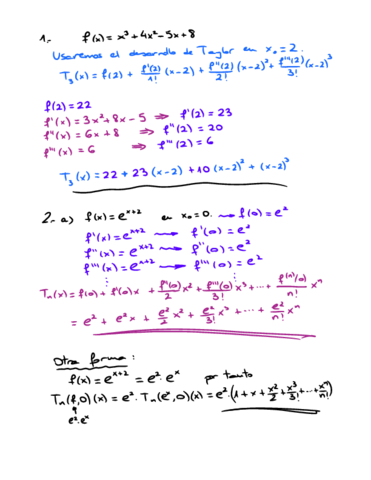 1.- f(x) = x³ + 4x² - 5x + 8
Usaremos el desarrollo de Taylor en x₀ = 2.
T₃(x) = f(2) + f'(2)/1! (x-2) + f''(2)/2! (x-2)² + f'''(2)/3! (x-2)³
f(2) = 22
f'(x) = 3x² + 8x - 5 ⇒ f'(2) = 23
f''(x) = 6x + 8 ⇒ f''(2) = 20
f'''(x) = 6 ⇒ f'''(2) = 6
T₃(x) = 22 + 23(x-2) + 10(x-2)² + (x-2)³
2.- a) f(x) = e^(x+2) en x₀ = 0. → f(0) = e²
f'(x) = e^(x+2) → f'(0) = e²
f''(x) = e^(x+2) → f''(0) = e²
f'''(x) = e^(x+2) → f'''(0) = e²
Tₙ(x) = f(0) + f'(0)x + f''(0)/2 x² + f'''(0)/3! x³ + ... + f^(n)(0)/n! xⁿ
= e² + e²x + e²/2 x² + e²/3! x³ + ... + e²/n! xⁿ
Otra forma:
f(x) = e^(x+2) = e² · e^x por tanto
Tₙ(f,0)(x) = e² · Tₙ(e^x,0)(x) = e² · (1 + x + x²/2 + x³/3! + ... + xⁿ/n!)
e² · e^x